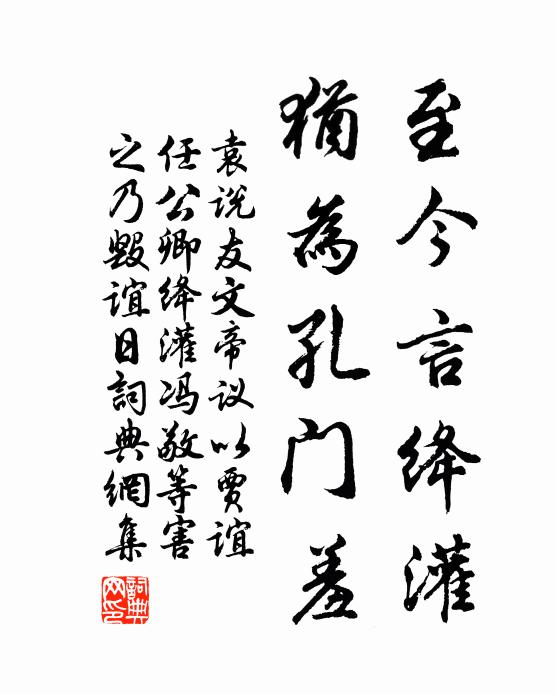 至今言绛灌
猶為孔門羞
袁说友文帝议以贾谊
任公卿绛灌冯敬等害
之乃毁谊日詞典網集
詞典
网印